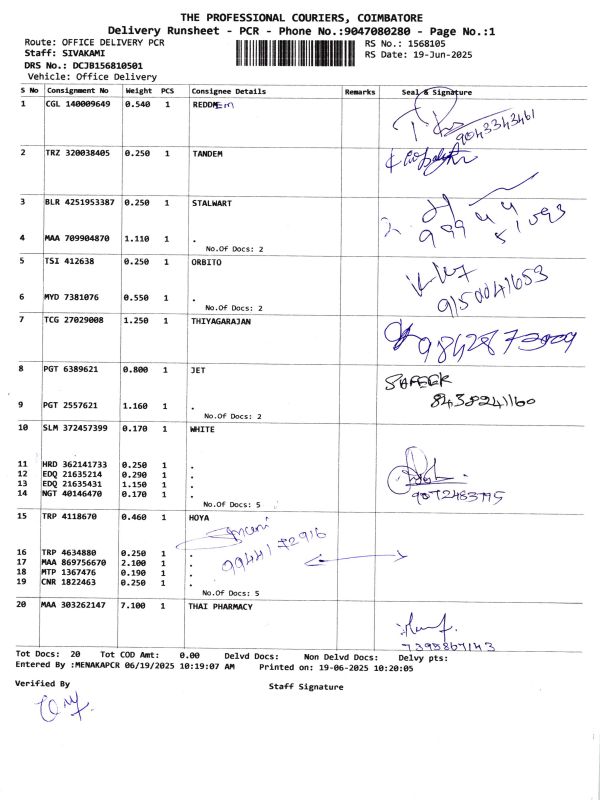 THE PROFESSIONAL COURIERS, COIMBATORE
Delivery Runsheet - PCR - Phone No.:9047080280 - Page No.:1
Route: OFFICE DELIVERY PCR RS No.: 1568105
Staff: SIVAKAMI RS Date: 19-Jun-2025
DRS No.: DCJB156810501
Vehicle: Office Delivery
S No Consignment No Weight PCS Consignee Details Remarks Seal & Signature
1 CGL 140009649 0.540 1 REDDM Em
9043343461
2 TRZ 320038405 0.250 1 TANDEM
3 BLR 4251953387 0.250 1 STALWART
999 44
51093
4 MAA 709904870 1.110 1 .
No.Of Docs: 2
5 TSI 412638 0.250 1 ORBITO
9150041653
6 MYD 7381076 0.550 1 .
No.Of Docs: 2
7 TCG 27029008 1.250 1 THIYAGARAJAN
8 PGT 6389621 0.800 1 JET
SAFEEK
8438241160
9 PGT 2557621 1.160 1 .
No.Of Docs: 2
10 SLM 372457399 0.170 1 WHITE
11 HRD 362141733 0.250 1 .
12 EDQ 21635214 0.290 1 .
13 EDQ 21635431 1.150 1 .
14 NGT 40146470 0.170 1 .
9072483795
No.Of Docs: 5
15 TRP 4118670 0.460 1 HOYA
9944172916
16 TRP 4634880 0.250 1 .
17 MAA 869756670 2.100 1 .
18 MTP 1367476 0.190 1 .
19 CNR 1822463 0.250 1 .
No.Of Docs: 5
20 MAA 303262147 7.100 1 THAI PHARMACY
7395867143
Tot Docs: 20 Tot COD Amt: 0.00 Delvd Docs: Non Delvd Docs: Delvy pts:
Entered By :MENAKAPCR 06/19/2025 10:19:07 AM Printed on: 19-06-2025 10:20:05
Verified By Staff Signature